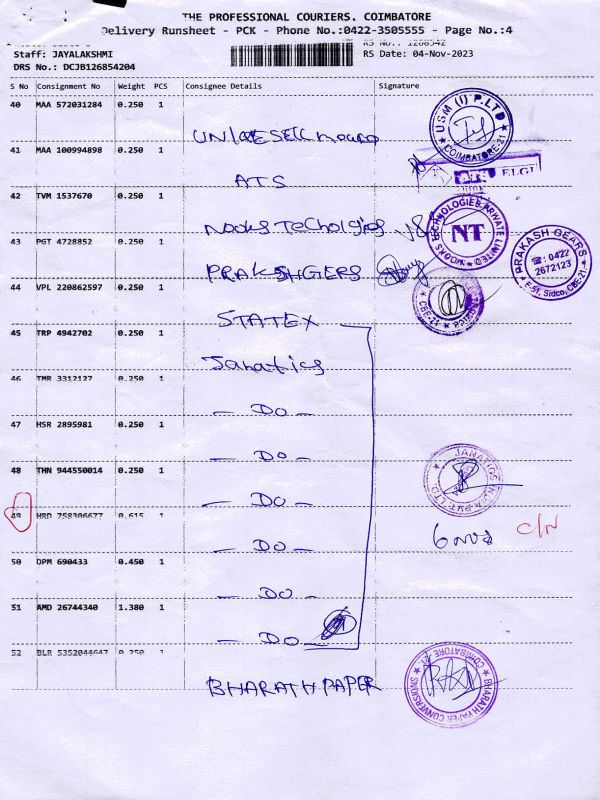 THE PROFESSIONAL COURIERS. COIMBATORE
Delivery Runsheet - PCK - Phone No.:0422-3505555 - Page No.:4
Staff: JAYALAKSHMI
DRS No.: DCJB126854204
RS No.: 1268542
RS Date: 04-Nov-2023
S No Consignment No Weight PCS Consignee Details Signature
40 MAA 572031284 0.250 1
USM (I) P.LTD
COIMBATORE-21
41 MAA 100994898 0.250 1
ELGI
ATS
42 TVM 1537670 0.250 1
NOOKS TECHNOLOGIES PRIVATE LIMITED
NT
NOOKS Techolgies
43 PGT 4728852 0.250 1
PRAKASH GEARS
☎: 0422
2672123
F-51, Sidco, CBE-21
PRAKSHGERS
44 VPL 220862597 0.250 1
CBE-21
STATEX
45 TRP 4942702 0.250 1
Janatics
46 TMR 3312127 0.250 1
- DO -
47 HSR 2895981 0.250 1
- DO -
48 THN 944550014 0.250 1
JANATICS INDIA PVT LTD
- DO -
49 HRD 758306677 0.615 1
6 Nos C/N
- DO -
50 DPM 690433 0.450 1
- DO -
51 AMD 26744340 1.380 1
- DO -
52 BLR 5352044647 0.250 1
BHARATH PAPER CONVERSIONS
COIMBATORE
BHARATH PAPER